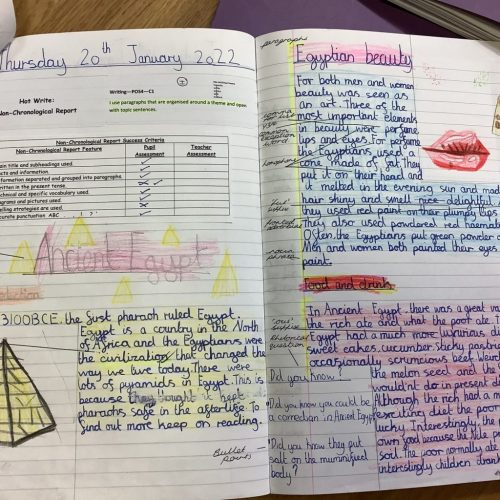 Thursday 20th January 2022
Hot Write:
Non-Chronological Report
Writing—POS4—C1
I use paragraphs that are organised around a theme and open
with topic sentences.
Non-Chronological Report Success Criteria
Non-Chronological Report Feature Pupil Assessment Teacher Assessment
ain title and subheadings used.
acts and information.
formation separated and grouped into paragraphs.
ritten in the present tense.
chnical and specific vocabulary used.
agrams and pictures used.
elling strategies are used.
curate punctuation ABC
Ancient Egypt
3100BCE. the first pharaoh ruled Egypt.
Egypt is a country in the North
of Africa and the Egyptians were
the civilization that changed the
way we live today. There were
lots of pyramids in Egypt. This is
because they thought it kept
pharaohs safe in the afterlife. To
find out more keep on reading.
Bullet
points
paragraphs
Egyptian beauty
For both men and women
beauty was seen as
an art. Three of the
most important elements
in beauty were perfume
lips and eyes. For perfume
the Egyptians used a
cone made of fat. They
put it on their head and
it melted in the evening sun and mad
hair shiny and smell nice. delightful
they used red paint on their plumpy lips
They also used powdered red haematite
Often, the Egyptians put green powder o
Men and women both painted their eyes
paint.
Food and drink
In Ancient Egypt, there was a great var
the rich ate and what the poor ate t
Egypt had a much more
sweet cakes, cucumber, sticky pastri
occasionally scrumcious beef. Weir
the melon seed and the
wouldn't do in present d
Although the rich had a m
exciting diet the poor
lucky. Interestingly, the
own food because the Nile
soil. The poor normally ate
interestingly children drank
'ous'
suffix
Rhetorical
question
Did you know?
Did you know you could be
a comedian in Ancient Egypt
Did you know they put
salt on the mummified
body?